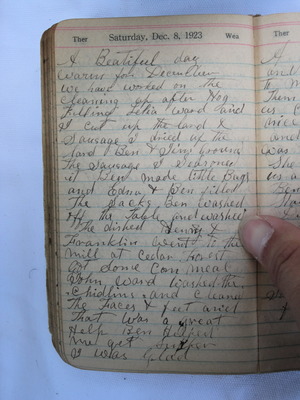 Ther Saturday, Dec. 8, 1923 Wea Ther
A Beatiful day
Warm for December
we have worked on the
cleaning up after Hog
Killing Ward and
I cut up the lard &
Sausage I dried up the
lard Ben & Jim ground
the Sausage I Seasoned
it made little Bags
and Edna & Ben filled
the Sacks Ben Washed
off the Table and washed
the dished Henry &
Franklin Went to the
mill at Cedar
Got Some Corn meal
John Ward Washed the
Chidlins and cleaned
the faces & feet and
That was a great
Help Ben Helped
me get Supper
I was Glad